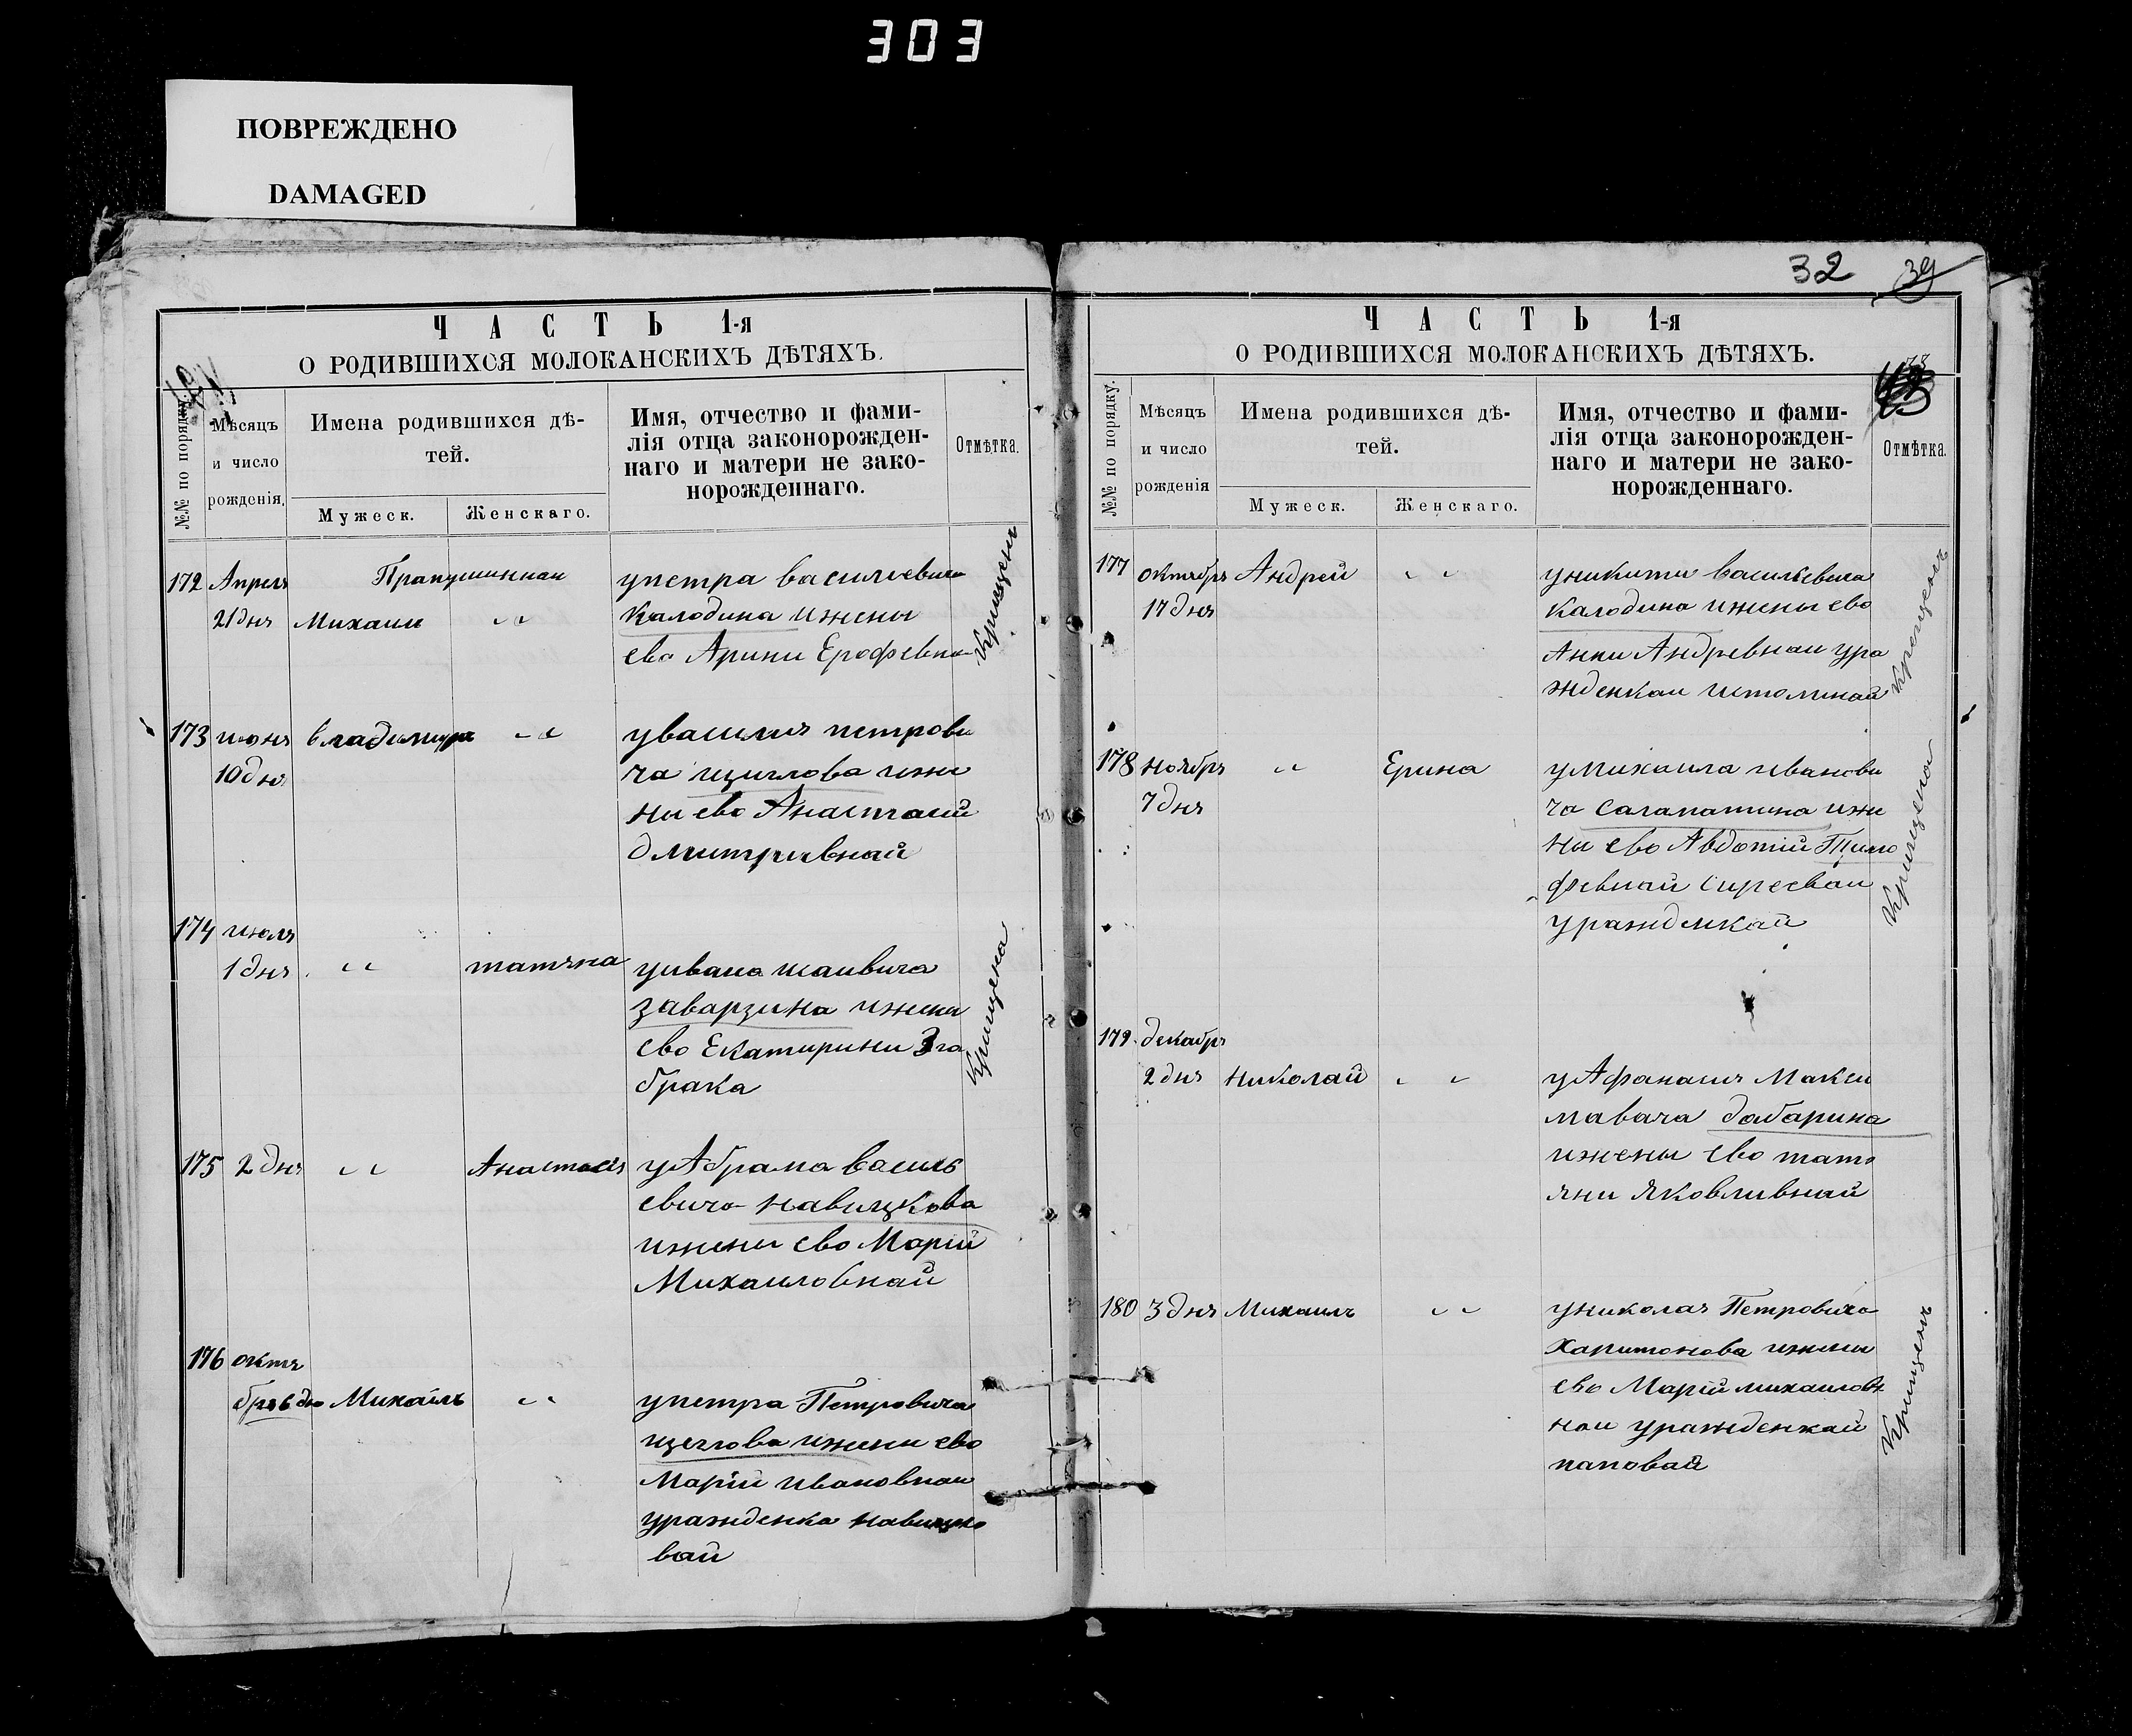 303
ПОВРЕЖДЕНО
DAMAGED
ЧАСТЬ 1-я
О РОДИВШИХСЯ МОЛОКАНСКИХЪ ДѢТЯХЪ.
№№ по порядку.
Мѣсяцъ
и число
рожденія.
Имена родившихся дѣ-
тей.
Мужеск.
Женскаго.
Имя, отчество и фами-
лія отца законорожден-
наго и матери не зако-
норожденнаго.
Отмѣтка.
172 Апреля Прапушиннаи упетра васильевича
21 дня Михаил " калодина ижены
ево Арини Ерофевна
Крищенъ
173 июня владимира " увасилия петрови
10 дня ча щиглова ижи
ны ево Анастасий
дмитривнай
174 июля
1 дня " татяна уивана исаивича
заварзина ижены
ево Екатирини 3 га
брака
Крищена
175 2 дня " Анастасия уАбрама василь
евича навицкова
ижены ево Марій
Михаиловнай
176 октя
бря 6 дня Михаилъ " упетра Петровича
щеглова ижены ево
Марій ивановнаи
уражденка навицко
вай
32 39
ЧАСТЬ 1-я
О РОДИВШИХСЯ МОЛОКАНСКИХЪ ДѢТЯХЪ.
№№ по порядку.
Мѣсяцъ
и число
рожденія
Имена родившихся дѣ-
тей.
Мужеск.
Женскаго.
Имя, отчество и фами-
лія отца законорожден-
наго и матери не зако-
норожденнаго.
Отмѣтка.
177 октября Андрей " уникити васильевича
17 дня калодина ижены ево
Анни Андревнаи ура
жденкаи истоминай
Крещенъ
178 ноября " Ерина умихаила иванови
7 дня ча салапатина ижи
ны ево Авдотий Тимо
февнай сиреевай
ураждмкай
Крищена
179. декабря
2 дня николай " уАфанасия Макси
мавача дабарина
ижены ево тать
яни яковливнай
180 3 дня Михаилъ " униколая Петровича
Харитонова ижены
ево Марій михаилов
наи уражденкай
паповай
Крищенъ